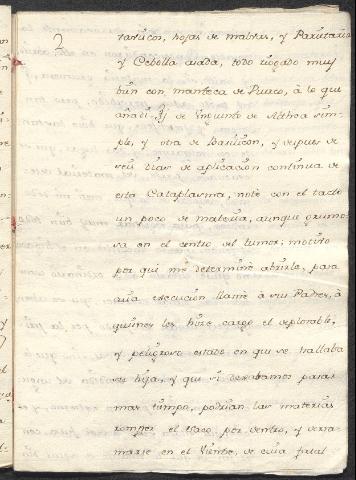 2
y Cebolla asada, todo rociado muy
bien con manteca de Puerco, à lo que
añadi ℥j de Unguento de Althea sim-
ple, y otra de Basilicon, y despues de
seis dias de aplicacion continua de
esta Cataplasma, noté con el tacto
un poco de materia, aunque grumo-
sa en el centro del tumor; motivo
por que me determiné abrirle, para
cuia execucion llamè à sus Padres, à
quienes les hize cargo el deplorable,
y peligroso estado en que se hallaba
su hija, y que si dexabamos pasar
mas tiempo, podrian las materias
romper el saco por dentro, y derra-
marse en el Vientre, de cuia fatal